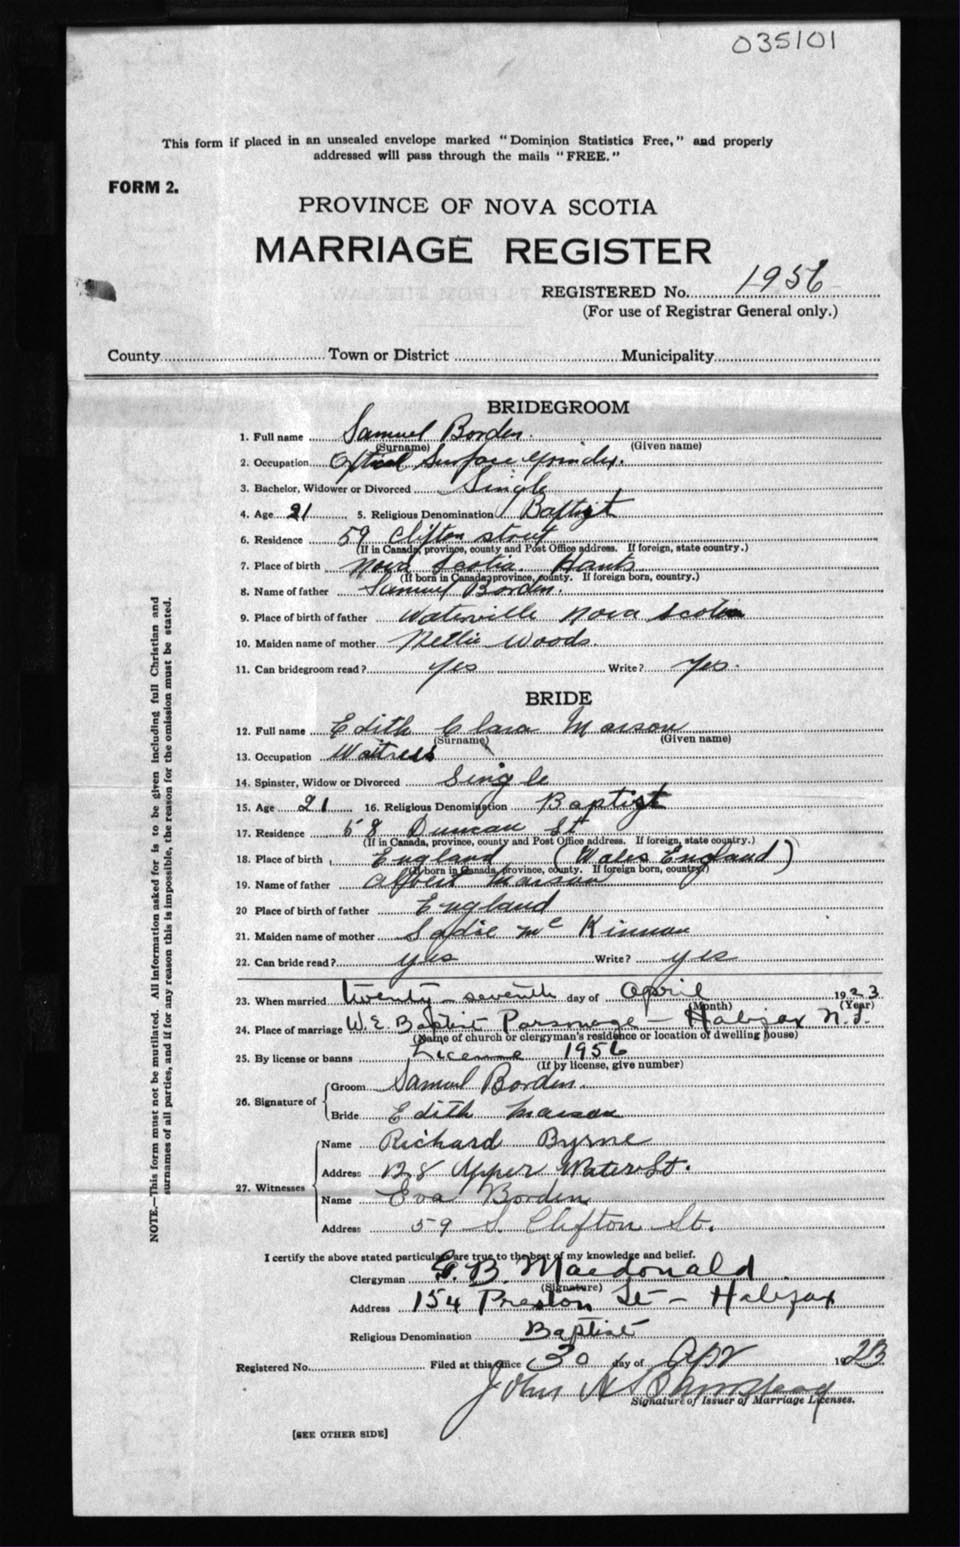 035101
This form if placed in an unsealed envelope marked "Dominion Statistics Free," and properly
addressed will pass through the mails "FREE."
FORM 2.
PROVINCE OF NOVA SCOTIA
MARRIAGE REGISTER
REGISTERED No. 1956
(For use of Registrar General only.)
County Town or District Municipality
BRIDEGROOM
1. Full name Samuel Borden.
(Surname) (Given name)
2. Occupation Optical Surface Grinder.
3. Bachelor, Widower or Divorced Single
4. Age 21 5. Religious Denomination Baptist
6. Residence 59 Clifton street
(If in Canada, province, county and Post Office address. If foreign, state country.)
7. Place of birth Nova Scotia. Hants.
(If born in Canada, province, county. If foreign born, country.)
8. Name of father Samuel Borden.
9. Place of birth of father Waterville Nova Scotia
10. Maiden name of mother Nellie Woods.
11. Can bridegroom read? yes Write? Yes.
BRIDE
12. Full name Edith Clara Marson
(Surname) (Given name)
13. Occupation Waitress
14. Spinster, Widow or Divorced Single
15. Age 21 16. Religious Denomination Baptist
17. Residence 58 Duncan St
(If in Canada, province, county and Post Office address. If foreign, state country.)
18. Place of birth England (Wales England)
(If born in Canada, province, county. If foreign born, country.)
19. Name of father Albert Marson
20 Place of birth of father England
21. Maiden name of mother Sadie McKinnon
22. Can bride read? yes Write? yes
23. When married twenty-seventh day of April 1923
(Month) (Year)
24. Place of marriage W.E. Baptist Parsonage - Halifax N.S.
(Name of church or clergyman's residence or location of dwelling house)
25. By license or banns License 1956
(If by license, give number)
26. Signature of Groom Samuel Borden.
Bride Edith Marson
27. Witnesses Name Richard Byrne
Address 128 Upper Water St.
Name Eva Borden
Address 59 S. Clifton St.
I certify the above stated particulars are true to the best of my knowledge and belief.
Clergyman G.B. Macdonald
(Signature)
Address 154 Preston St - Halifax
Religious Denomination Baptist
Registered No. Filed at this office 30 day of Apr 1923
John A
Signature of Issuer of Marriage Licenses.
[SEE OTHER SIDE]
NOTE.—This form must not be mutilated. All information asked for is to be given including full Christian and
surnames of all parties, and if for any reason this is impossible, the reason for the omission must be stated.